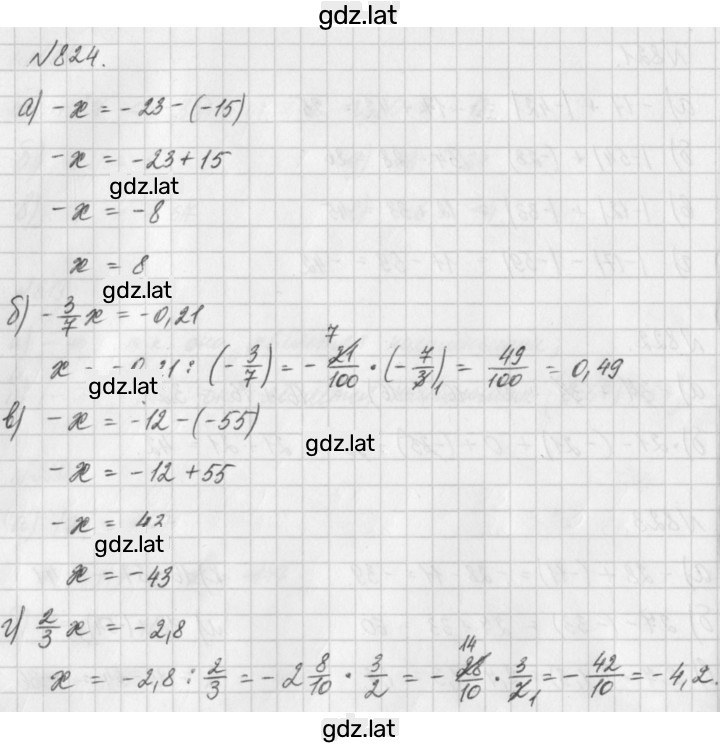 gdz.lat
№824.
а) -x = -23-(-15)
-x = -23+15
gdz.lat
-x = -8
x = 8
gdz.lat
б) -3/7 x = -0,21
x = -0,21 : (-3/7) = - 7 21/100 · (-7/3 1) = 49/100 = 0,49
gdz.lat
в) -x = -12-(-55)
gdz.lat
-x = -12+55
-x = 43
gdz.lat
x = -43
г) 2/3 x = -2,8
x = -2,8 : 2/3 = -2 8/10 · 3/2 = - 14 28/10 · 3/2 1 = - 42/10 = -4,2.
gdz.lat